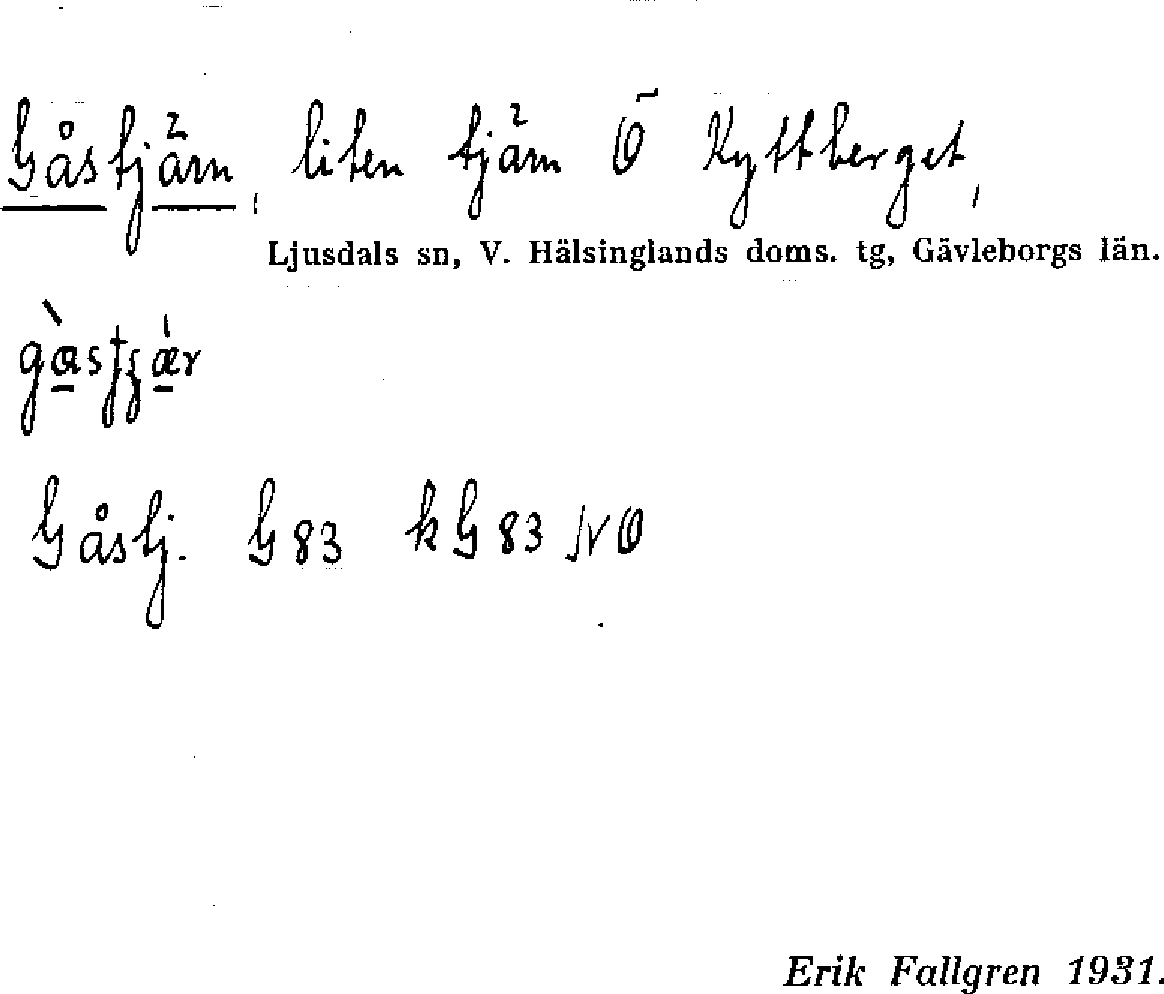 Gåstjärn, liten tjärn Ö Kyttberget,
Ljusdals sn, V. Hälsinglands doms. tg, Gävleborgs län.
Gåstj. G 83 kG 83 NO
Erik Fallgren 1931.